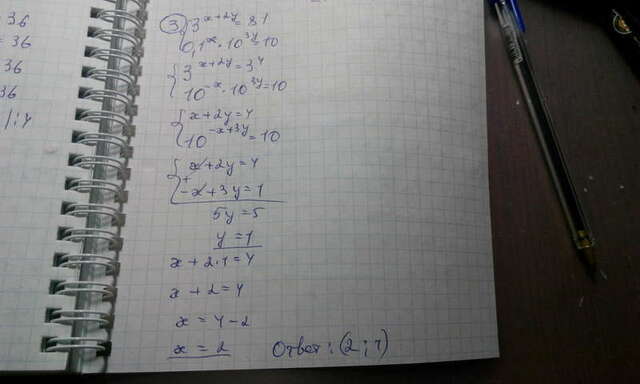 36
= 36
36
36
| : 4
③ { 3^{x+2y} = 81
0,1^x · 10^{3y} = 10
{ 3^{x+2y} = 3^4
10^{-x} · 10^{3y} = 10
{ x + 2y = 4
10^{-x+3y} = 10
{ x + 2y = 4
+
-x + 3y = 1
5y = 5
y = 1
x + 2·1 = 4
x + 2 = 4
x = 4 - 2
x = 2 Ответ: (2; 1)